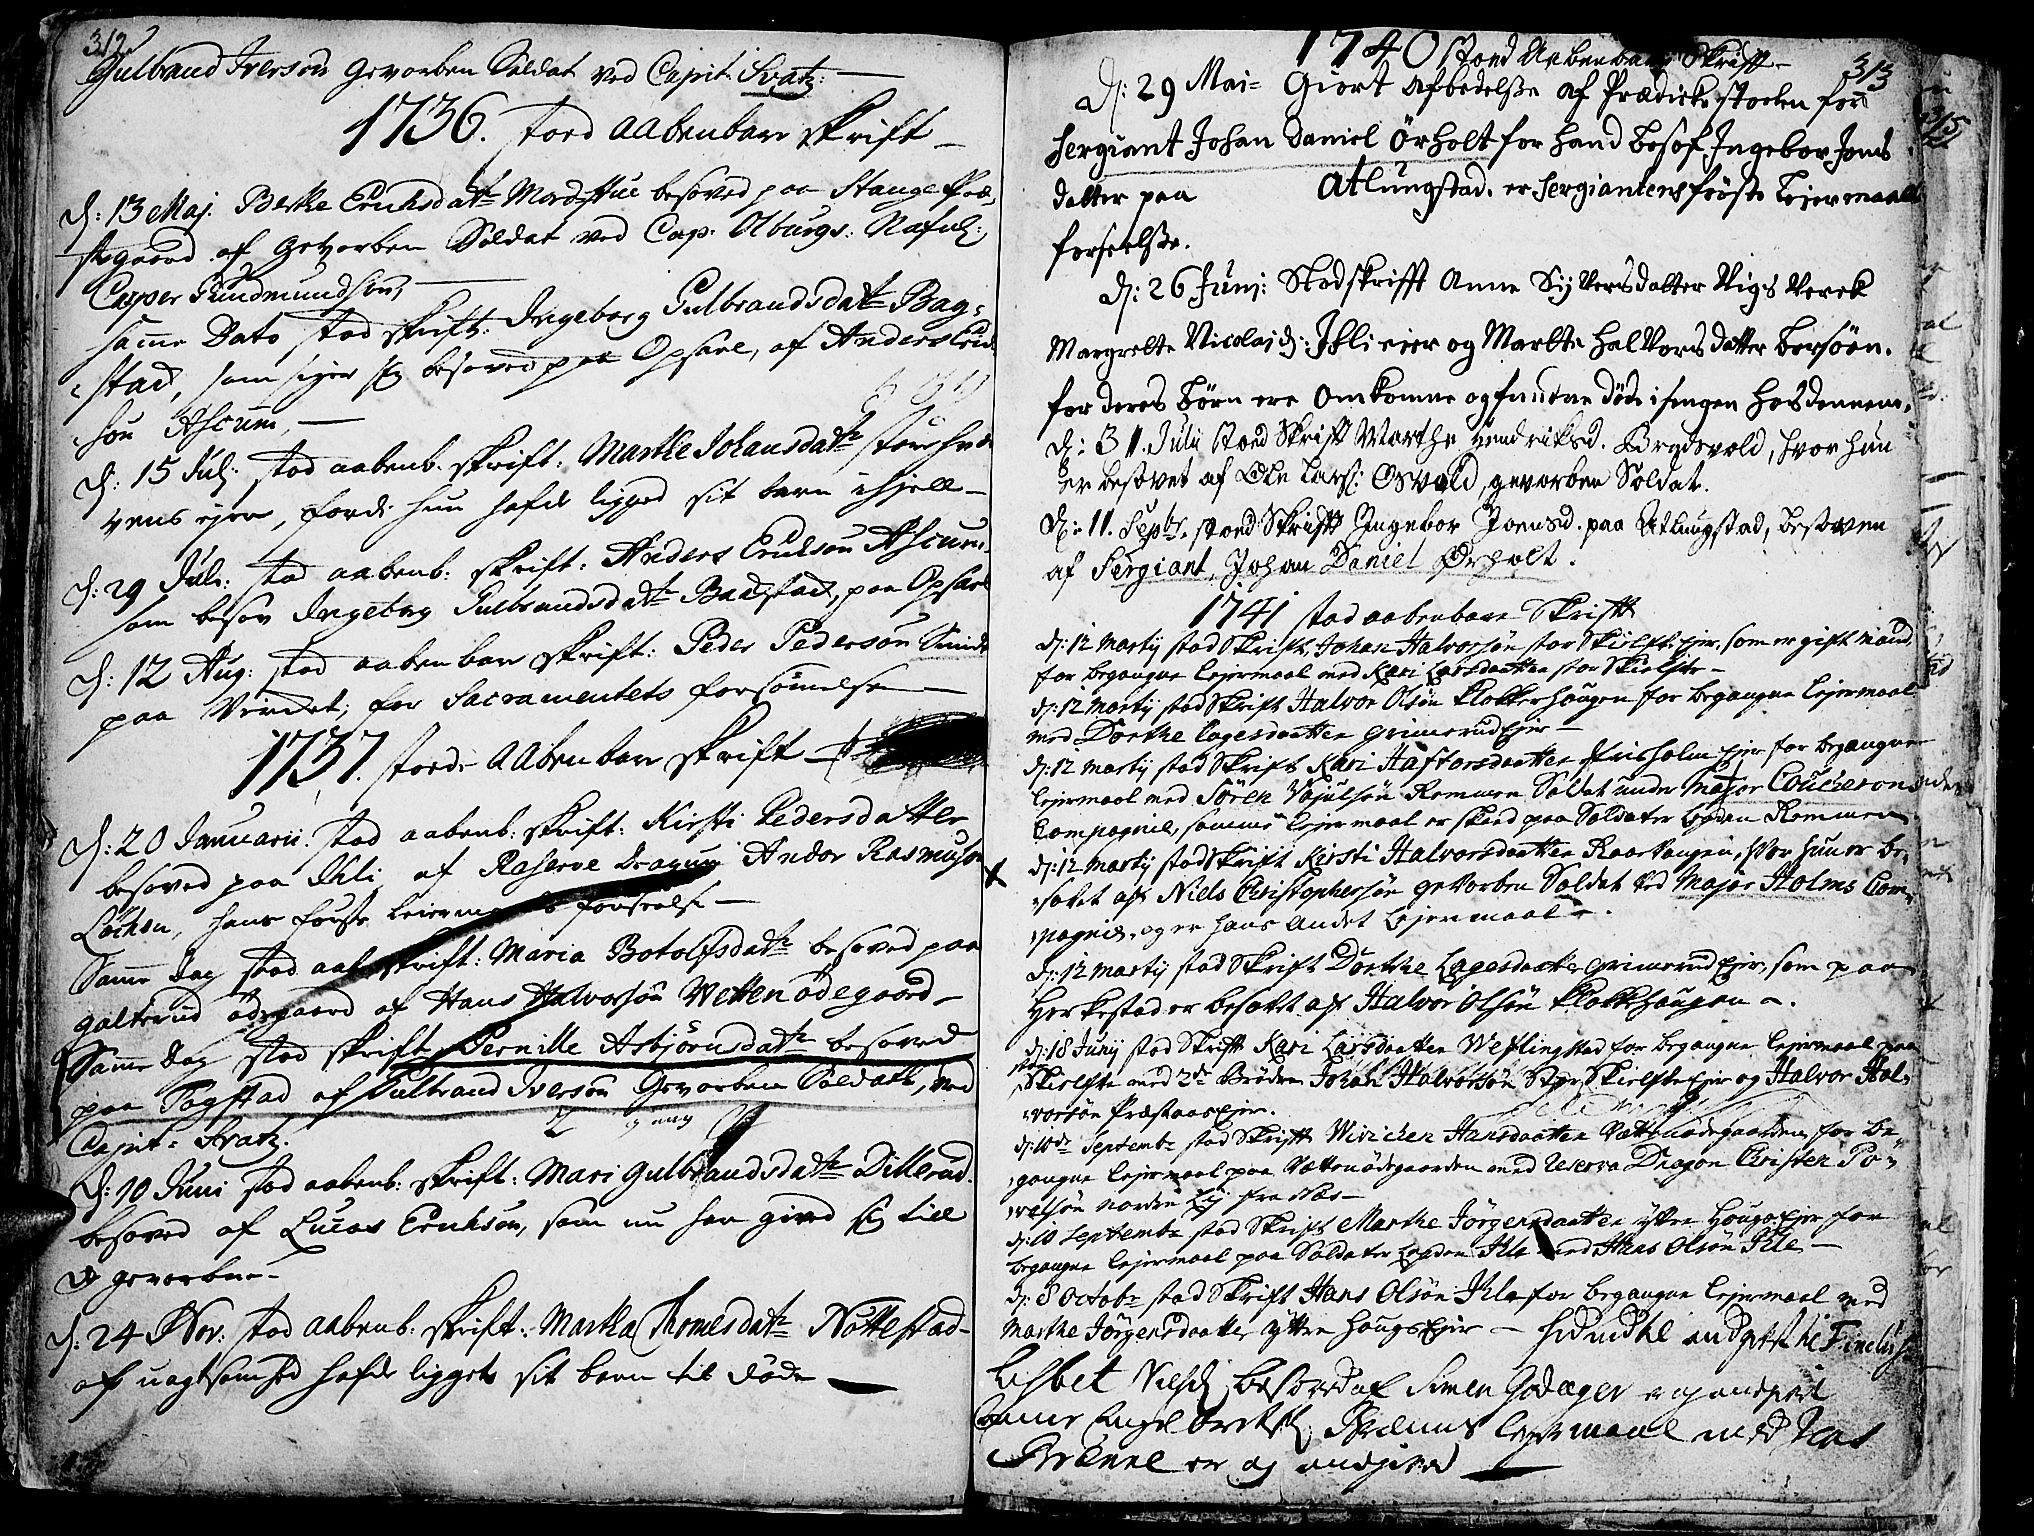 312
Gulband Iversøn gevorben Soldat ved Capit: Svatz: —
1736. stoed aabenbare skrift —
d: 13 Maj. Berthe Erichsdatr Mordstue besoved paa Stange Præ-
stegaard af gevorben Soldat ved Cap. Olburgs:
Casper Gundmundsøn, —
samme Dato stod skrift: Ingeborg Gulbrandsdatr Bag-
stad, som siger sig besoved paa Opsael, af Anders
søn Ascum, —
d: 15 Julj stod aabenb. skrift: Marthe Johansdatr
vens ejer, fordi hun hafde ligged sit barn ihjell —
d: 29 Julj: stod aabenb: skrift: Anders Erichsøn Ascum
som besov Ingeborg Gulbrandsdatr Bagstad, paa Opsael
d: 12 Aug: stod aabenbare skrift: Peder Pedersøn
paa Verdet, for Sacramentets forsømelse —
1737. stoede aabenbare skrift —
d: 20 Januarii. stod aabenb: skrift: Kirsti Pedersdatter
besoved paa Ihle af Reserve Dragun Andor Rasmusøn
Løchen, hans første leiermaals forseelse —
Samme dag stod aab. skrift: Maria Botolfsdatr besoved paa
galterud ødegaard af Hans Halvorsøn Wettenødegaard —
Samme dag stod skrift Pernille Asbjørnsdatr besoved
paa Sogstad af Gulbrand Iversøn Gevorben Soldatt, ved
Capit: Svatz.
d: 10 Juni stod aabenb: skrift: Mari Gulbrandsdatr Dillerud
besoved af Lucas Erichsøn, som nu har gived sig till
de gevorbne —
d: 24 Nov: stod aabenb: skrift: Martha Thomesdatr Nøttestad —
af uagtsomhed hafde ligget sit barn til døde —
1740 stoed Aabenbare Skrift —
313
d: 29 Mai = Giort Afbedelsse af Prædickestoelen for
Sergiant Johan Daniel Örholt for hand besof Ingebor Joens
datter paa Atlungstad. er Sergiantens første Leiermaals
forseelsse.
d: 26 Junj: Stod skrifft Anne Sijversdatter Vigs Verek
Margrette Nicolajd: Ihli eier og Marthe Halvorsdatter Borsøen.
for deres Børn ere omkomne og fundene døde i sengen hos dennem,
d: 31. Julii stoed Skrift Marthe Hendriksd. Brydsvold, hvor hun
er besovet af Ole Lars: Osvold, gevorben Soldat.
d: 11. Septr. stoed Skrift Ingebor Joensd. paa Atlungstad, besoven
af Sergiant, Johan Daniel Ørholt.
1741 stod aabenbare Skrift
d: 12 Martij stod Skrift, Johan Halvorsøn stor Skielst. Ejer, som er gift Mand,
for begangne lejermaal med Kari Larsdaatter stor Skielste —
d: 12 Martij stod Skrift Halvor Olsøn Klokkerhaugen for begangne lejermaal
med Dorthe Lagesdaatter Grimerud Ejer —
d: 12 Martij stod Skrift Kari Haftorsdaatter Frisholm Ejer for begangne
lejermaal med Sören Pojulsøn Rommen Soldat under Major Coucherons
Compagnie, samme lejermaal er skeed paa Soldater Leeden Rommen
x d: 12 Martij stod Skrift Kirsti Halvorsdaatter Raavangen, hvor hun er be-
sovet af Niels Christophersøn gevorben Soldat ved Major Holms Com-
pagnie, og er hans andet Lejermaal —.
d: 12 Martij stod Skrift Dorthe Lagesdaatter Grimerud Ejer, som paa
Herkestad er besovet af Halvor Olsøn Klokkehaugen —.
d: 18 Junij stod Skrift Kari Larsdaatter Westlingstad for begangne lejermaal paa
stor Skielste med 2de Brødre Johan Halvorsøn Stor Skielste Ejer og Halvor Hal-
vorsøn Præstaas Ejer.
d: 10de Septembr stod Skrift Wivicher Hansdaatter Vættenødegaarden for be-
gangne lejermaal paa Vættenødegaarden med Reserve Dragon Christen Po-
velsøn nordre Lij fra Næs —
d: 10 Septembr stod Skrift Marthe Jörgensdaatter yttre Houg Ejer for
begangne lejermaal paa Soldater Leeden Ihle med Hans Olsøn Ihle —
d: 8 Octobr stod Skrift Hans Olsøn Ihle for begangne lejermaal med
Marthe Jörgensdaatter yttre Hougs Ejer —
Lisbet Nielsd: besoved af Simen Godager er og angived
Anne Engelbretsd: lejermaal med
er og angived —